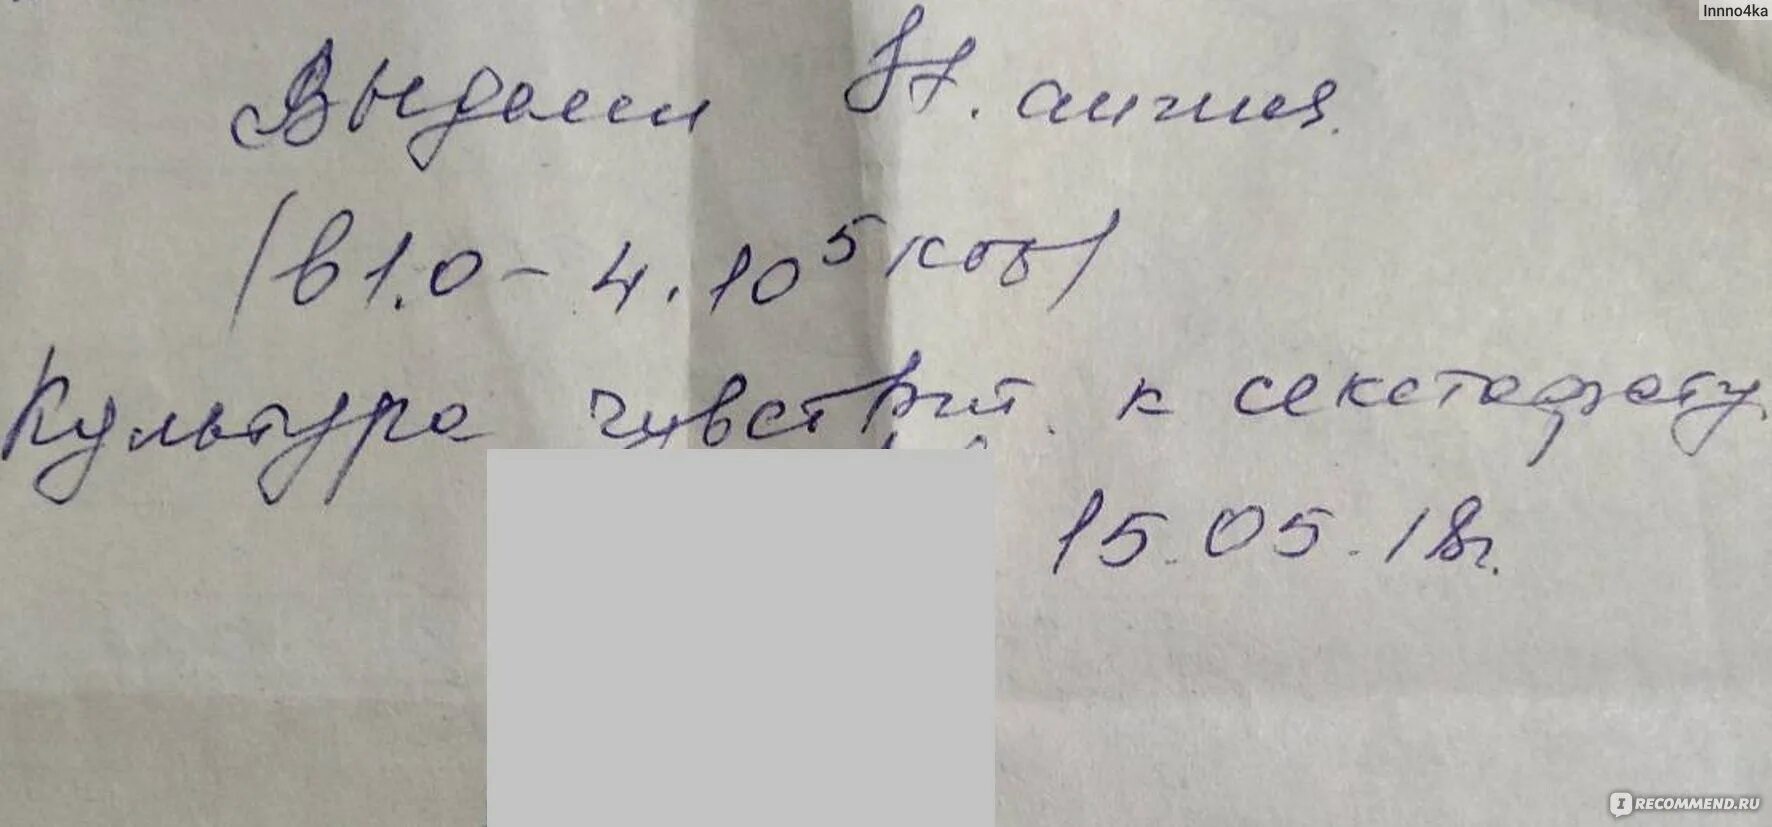 Innno4ka
Выделен
(в 1.0 - 4.10⁵ кое)
Культура чувствит. к секстафагу.
15.05.18г.
IRECOMMEND.RU